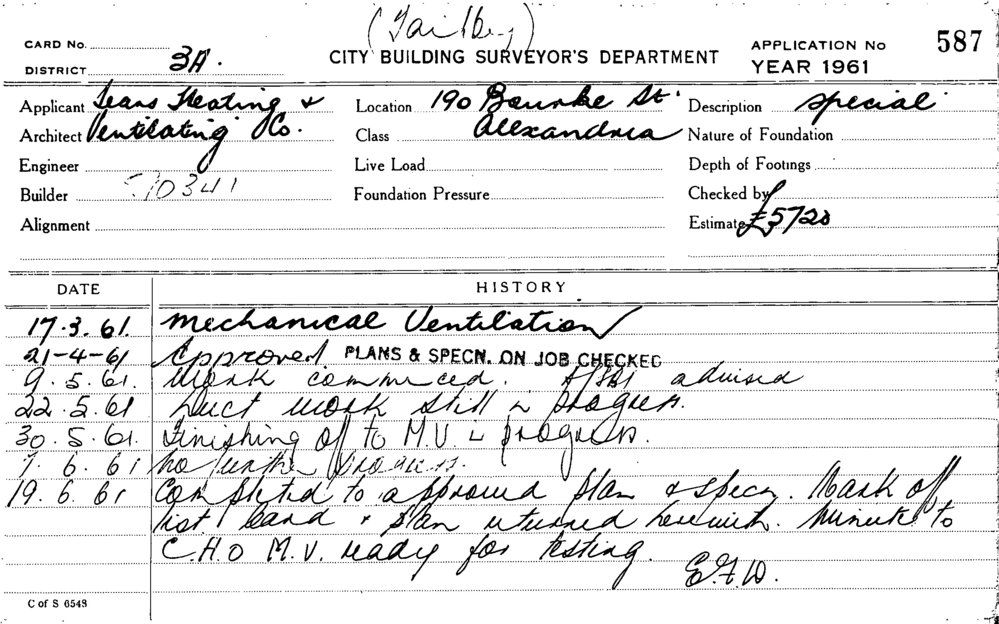 (Tailby)
CARD No.
CITY BUILDING SURVEYOR'S DEPARTMENT
APPLICATION No 587
DISTRICT 3A.
YEAR 1961
Applicant Sears Heating &
Location 190 Bourke St.
Description special
Architect Ventilating Co.
Class Alexandria
Nature of Foundation
Engineer
Live Load
Depth of Footings
Builder 90341
Foundation Pressure
Checked by
Alignment
Estimate £5720
DATE HISTORY
17.3.61. Mechanical Ventilation
21-4-61 Approved PLANS & SPECN. ON JOB CHECKED
9.5.61. Work commenced. advised
22.5.61 Duct work still in progress.
30.5.61. Finishing off to M.V. in progress.
7.6.61 No further progress.
19.6.61 Completed to approved plan & specn. Mark off
list card & plan returned herewith. Minute to
C.H.O M.V. ready for testing.
E.F.W.
C of S 6548